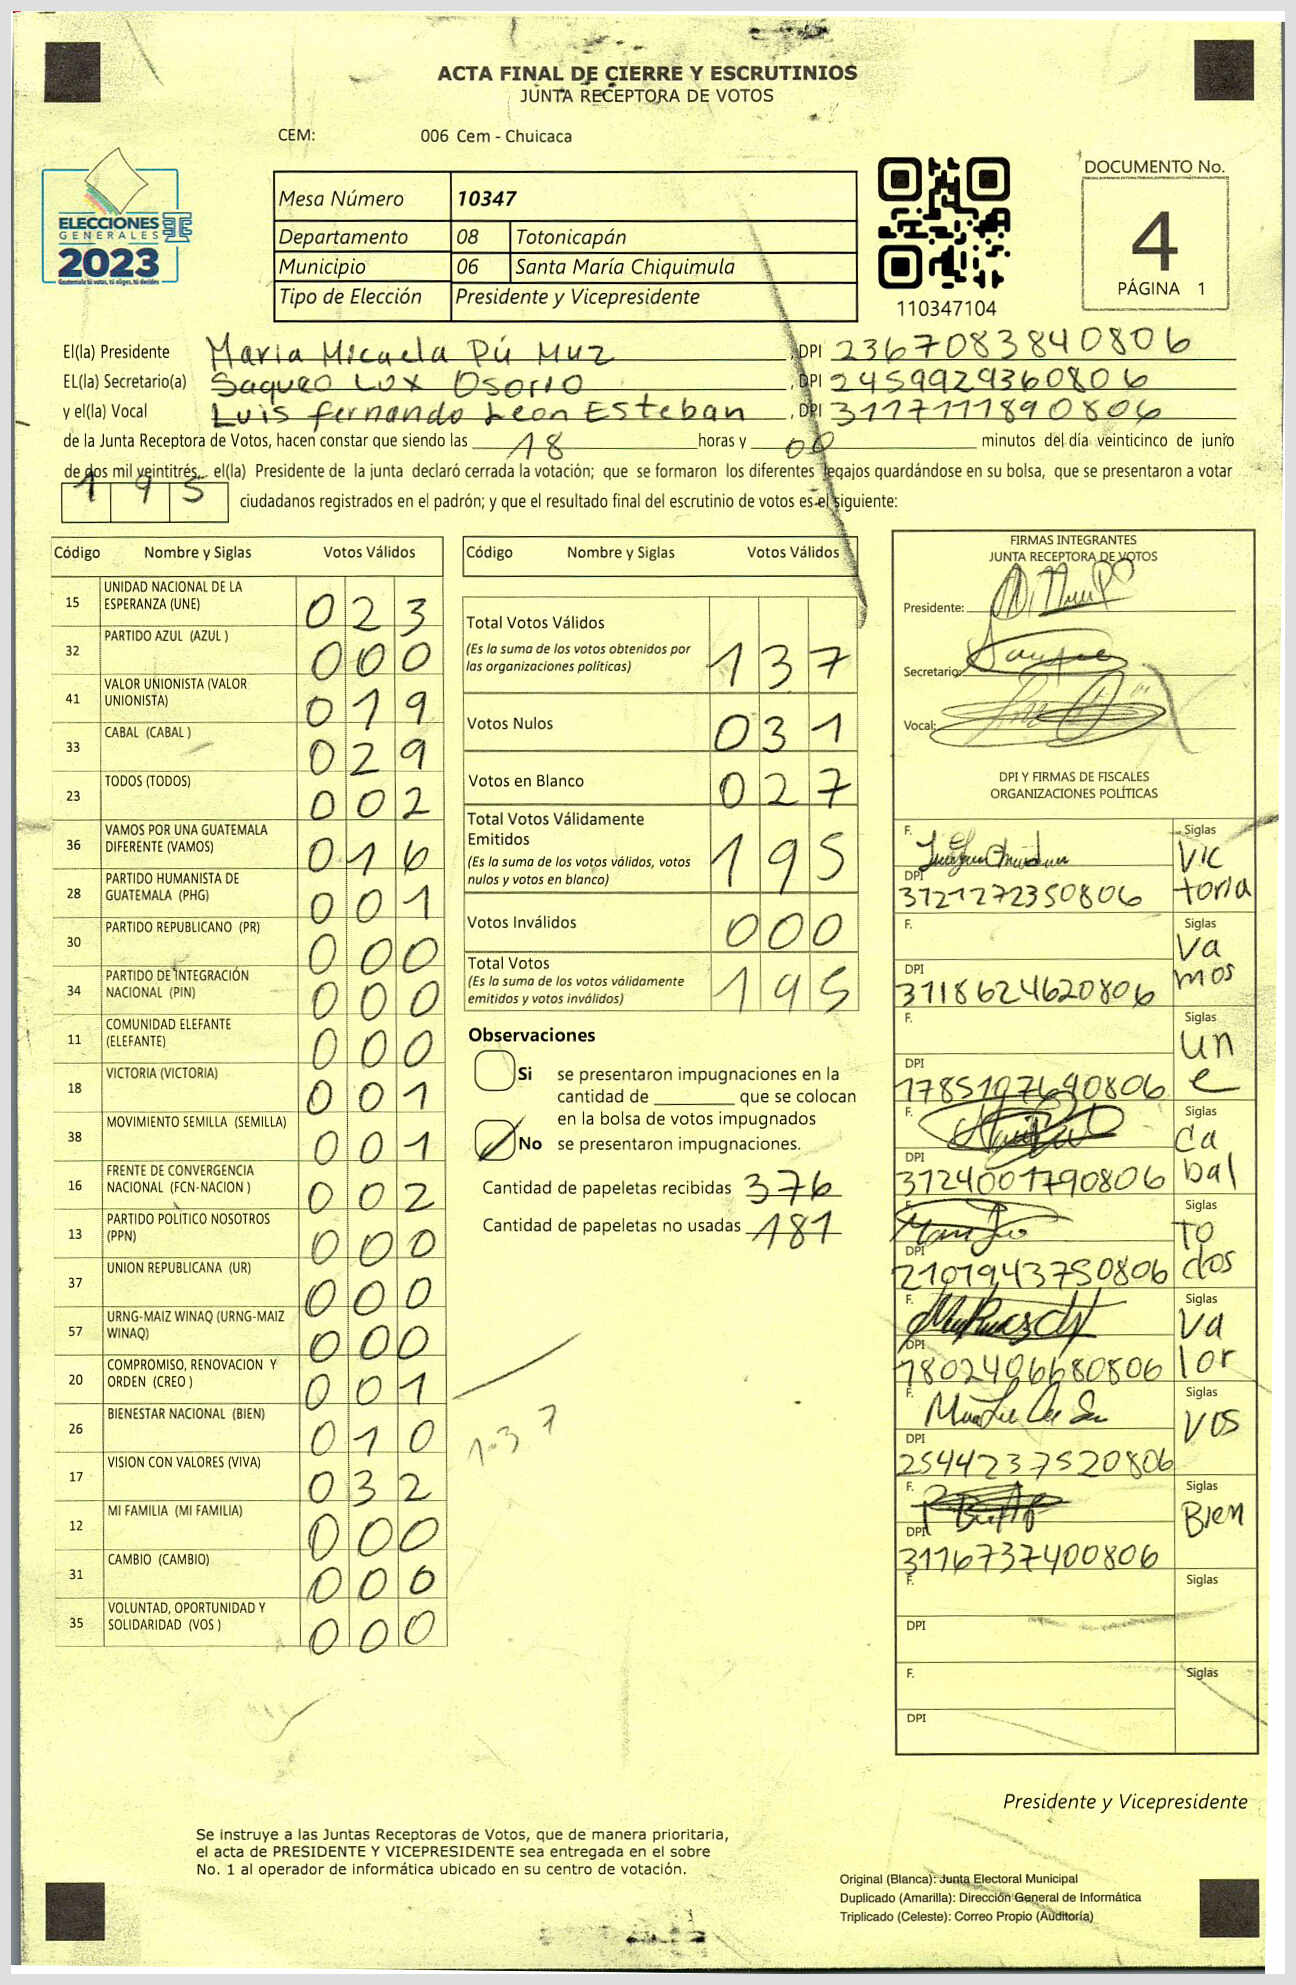 ACTA FINAL DE CIERRE Y ESCRUTINIOS
JUNTA RECEPTORA DE VOTOS
CEM: 006 Cem - Chuicaca
ELECCIONES
GENERALES
2023
Guatemala tú votas, tú eliges, tú decides
Mesa Número 10347
Departamento 08 Totonicapán
Municipio 06 Santa María Chiquimula
Tipo de Elección Presidente y Vicepresidente
110347104
DOCUMENTO No.
4
PÁGINA 1
El(la) Presidente Maria Micaela Pú Muz, DPI 2367083840806
EL(la) Secretario(a) Saqueo Lux Osorio, DPI 2459929360806
y el(la) Vocal Luis fernando Leon Esteban, DPI 3117111890806
de la Junta Receptora de Votos, hacen constar que siendo las 18 horas y 00 minutos del día veinticinco de junio
de dos mil veintitrés, el(la) Presidente de la junta declaró cerrada la votación; que se formaron los diferentes legajos quardándose en su bolsa, que se presentaron a votar
195 ciudadanos registrados en el padrón; y que el resultado final del escrutinio de votos es el siguiente:
Código Nombre y Siglas Votos Válidos
15 UNIDAD NACIONAL DE LA
ESPERANZA (UNE) 023
32 PARTIDO AZUL (AZUL ) 000
41 VALOR UNIONISTA (VALOR
UNIONISTA) 019
33 CABAL (CABAL ) 029
23 TODOS (TODOS) 002
36 VAMOS POR UNA GUATEMALA
DIFERENTE (VAMOS) 016
28 PARTIDO HUMANISTA DE
GUATEMALA (PHG) 001
30 PARTIDO REPUBLICANO (PR) 000
34 PARTIDO DE INTEGRACIÓN
NACIONAL (PIN) 000
11 COMUNIDAD ELEFANTE
(ELEFANTE) 000
18 VICTORIA (VICTORIA) 001
38 MOVIMIENTO SEMILLA (SEMILLA) 001
16 FRENTE DE CONVERGENCIA
NACIONAL (FCN-NACION ) 002
13 PARTIDO POLITICO NOSOTROS
(PPN) 000
37 UNION REPUBLICANA (UR) 000
57 URNG-MAIZ WINAQ (URNG-MAIZ
WINAQ) 000
20 COMPROMISO, RENOVACION Y
ORDEN (CREO ) 001
26 BIENESTAR NACIONAL (BIEN) 010
17 VISION CON VALORES (VIVA) 032
12 MI FAMILIA (MI FAMILIA) 000
31 CAMBIO (CAMBIO) 000
35 VOLUNTAD, OPORTUNIDAD Y
SOLIDARIDAD (VOS ) 000
Código Nombre y Siglas Votos Válidos
Total Votos Válidos
(Es la suma de los votos obtenidos por
las organizaciones políticas) 137
Votos Nulos 031
Votos en Blanco 027
Total Votos Válidamente
Emitidos
(Es la suma de los votos válidos, votos
nulos y votos en blanco) 195
Votos Inválidos 000
Total Votos
(Es la suma de los votos válidamente
emitidos y votos inválidos) 195
Observaciones
Si se presentaron impugnaciones en la
cantidad de ________ que se colocan
en la bolsa de votos impugnados
No se presentaron impugnaciones.
Cantidad de papeletas recibidas 376
Cantidad de papeletas no usadas 181
137
FIRMAS INTEGRANTES
JUNTA RECEPTORA DE VOTOS
Presidente:
Secretario:
Vocal:
DPI Y FIRMAS DE FISCALES
ORGANIZACIONES POLÍTICAS
F. Siglas
DPI 3121272350806 Victoria
F. Siglas
DPI 3118624620806 Vamos
F. Siglas
DPI 1785107640806 une
F. Siglas
DPI 3124001790806 cabal
F. Siglas
DPI 2101943750806 Todos
F. Siglas
DPI 1802406680806 Valor
F. Siglas
DPI 2544237520806 VOS
F. Siglas
DPI 3116737400806 Bien
F. Siglas
DPI
F. Siglas
DPI
Presidente y Vicepresidente
Se instruye a las Juntas Receptoras de Votos, que de manera prioritaria,
el acta de PRESIDENTE Y VICEPRESIDENTE sea entregada en el sobre
No. 1 al operador de informática ubicado en su centro de votación.
Original (Blanca): Junta Electoral Municipal
Duplicado (Amarilla): Dirección General de Informática
Triplicado (Celeste): Correo Propio (Auditoría)